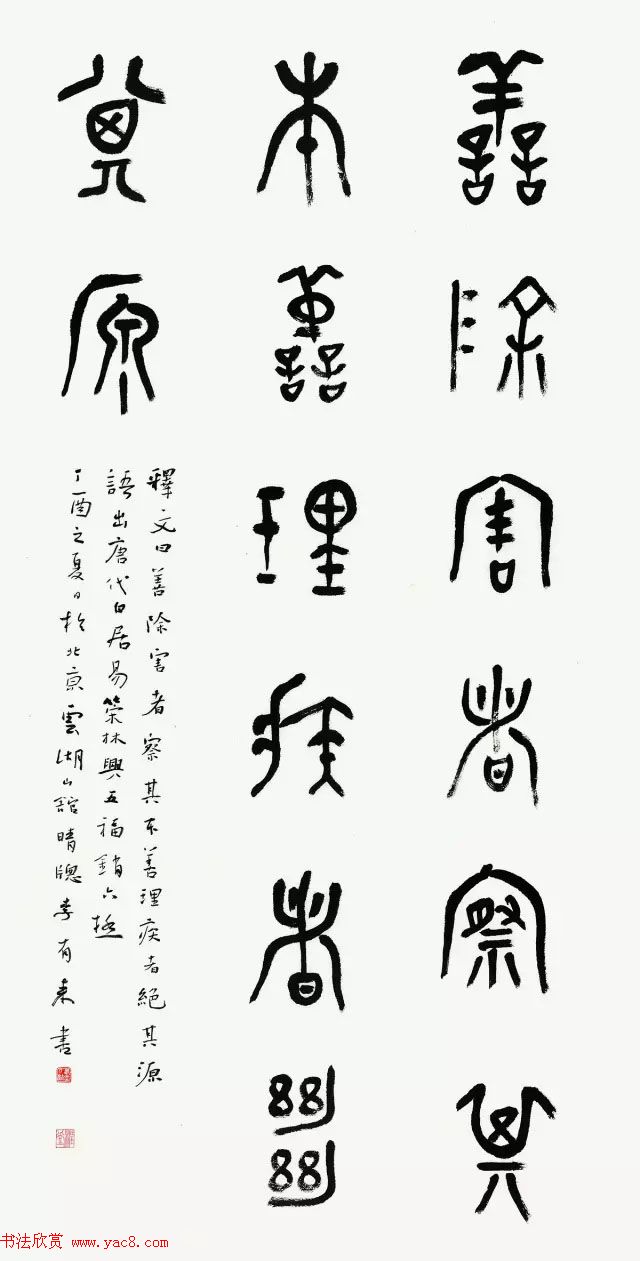 善除害者察其
本善理疾者絕
其原
釋文曰善除害者察其本善理疾者絕其源
語出唐代白居易策林興五福銷六極
丁酉之夏日於北京雲湖山館晴窗李有來書
书法欣赏 www.yac8.com